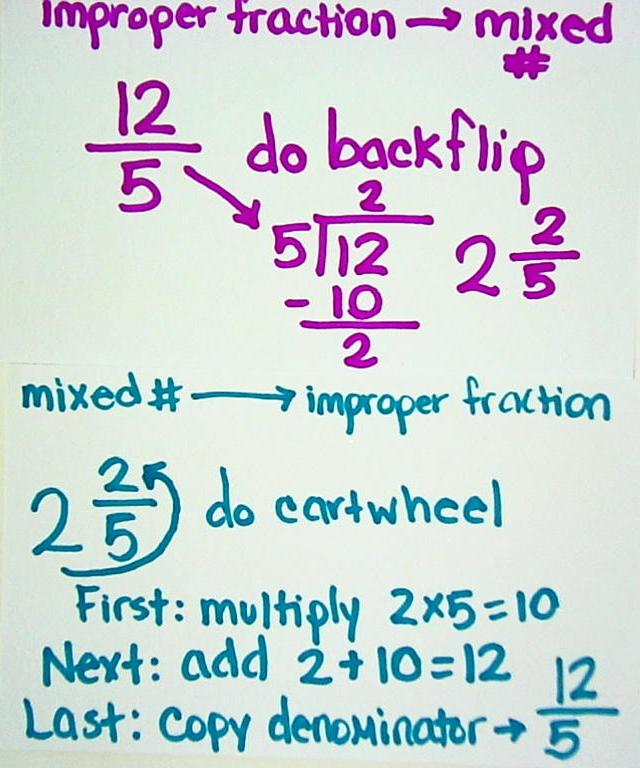 improper fraction → mixed
#
12
5
do backflip
2
5 12
- 10
2
2 2/5
mixed # → improper fraction
2 2/5 do cartwheel
First: multiply 2×5=10
Next: add 2+10=12
Last: copy denominator → 12/5